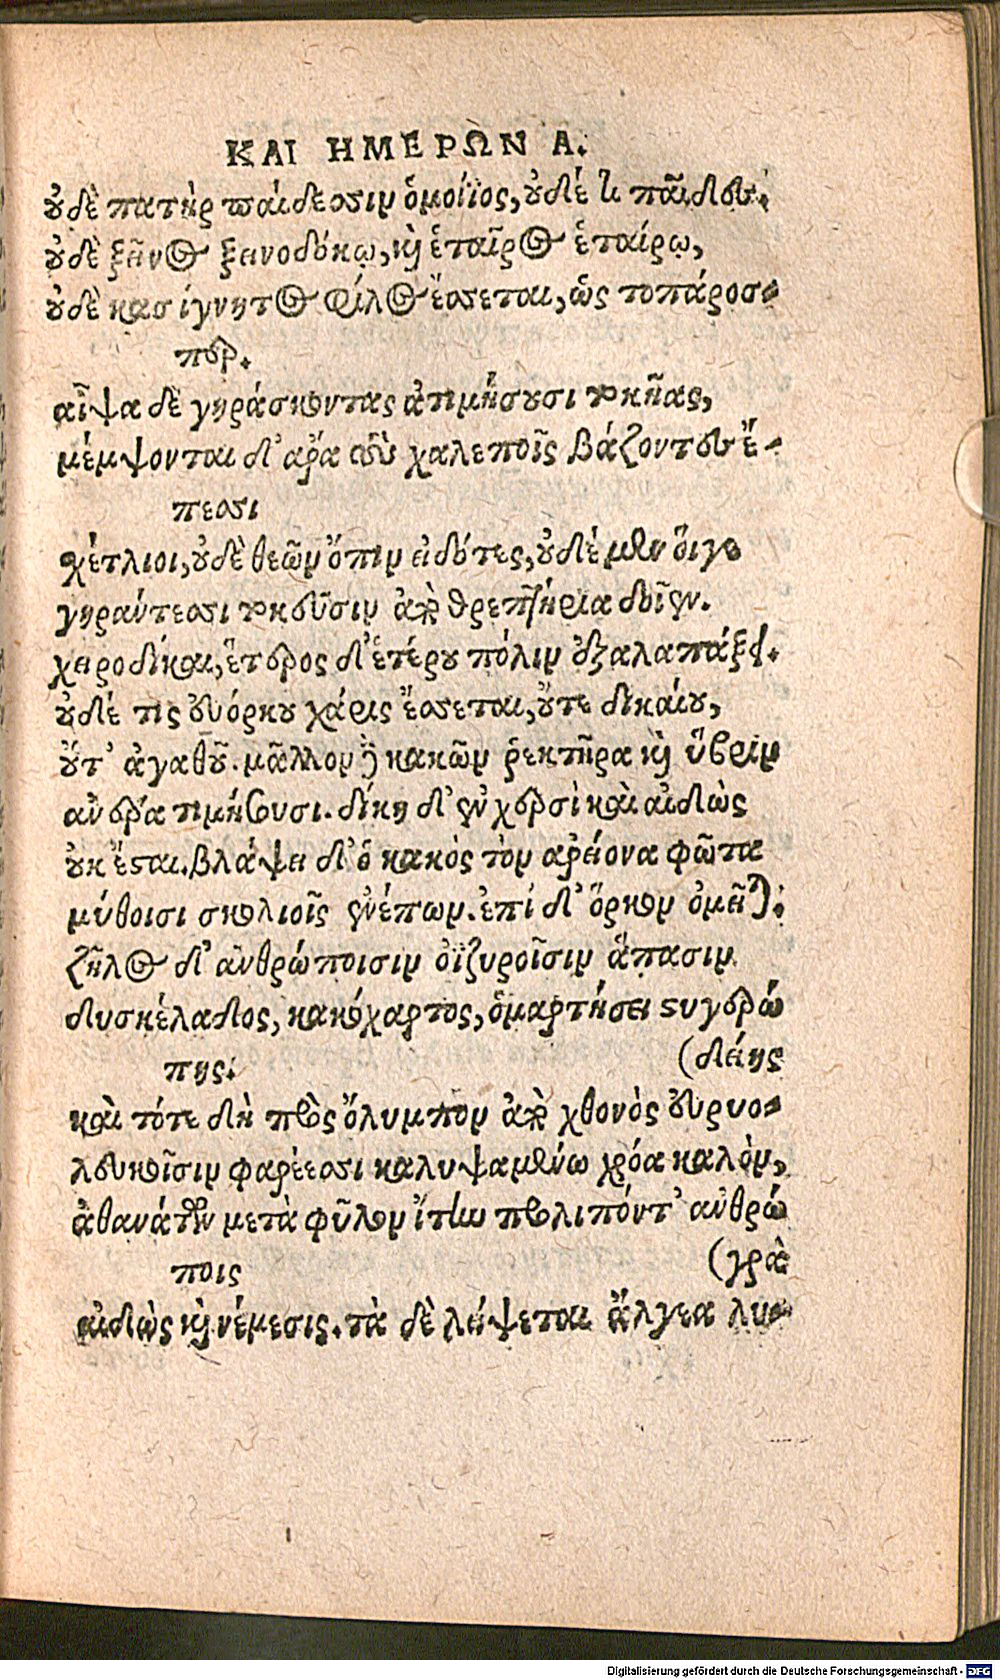 ΚΑΙ ΗΜΕΡΩΝ Α.
οὐδὲ πατὴρ παίδεσσιν ὁμοίϊος, οὐδέ τι παῖδες·
οὐδὲ ξεῖνος ξεινοδόκῳ, καὶ ἑταῖρος ἑταίρῳ,
οὐδὲ κασίγνητος φίλος ἔσσεται, ὡς τοπάροσ-
περ.
αἶψα δὲ γηράσκοντας ἀτιμήσουσι τοκῆας,
μέμψονται δ' ἄρα τοὺς χαλεποῖς βάζοντες ἔ-
πεσσι
σχέτλιοι, οὐδὲ θεῶν ὄπιν εἰδότες, οὐδέ μεν οἵγε
γηράντεσσι τοκεῦσιν ἀπὸ θρεπτήρια δοῖεν.
χειροδίκαι, ἕτερος δ' ἑτέρου πόλιν ἐξαλαπάξει.
οὐδέ τις εὐόρκου χάρις ἔσσεται, οὔτε δικαίου,
οὔτ' ἀγαθοῦ. μᾶλλον δὲ κακῶν ῥεκτῆρα καὶ ὕβριν
ἀνέρα τιμήσουσι. δίκη δ' ἐν χερσὶ καὶ αἰδὼς
οὐκ ἔσται. βλάψει δ' ὁ κακὸς τὸν ἀρείονα φῶτα
μύθοισι σκολιοῖς ἐνέπων. ἐπὶ δ' ὅρκον ὀμεῖται·
ζῆλος δ' ἀνθρώποισιν οἰζυροῖσιν ἅπασιν
δυσκέλαδος, κακόχαρτος, ὁμαρτήσει στυγερώ
(δείης
πης·
καὶ τότε δὴ πρὸς ὄλυμπον ἀπὸ χθονὸς εὐρυο-
λευκοῖσιν φαρέεσσι καλυψαμένω χρόα καλὸν,
ἀθανάτων μετὰ φῦλον ἴτην προλιπόντ' ἀνθρώ
(γρὰ
ποις
αἰδὼς καὶ νέμεσις. τὰ δὲ λείψεται ἄλγεα λυ-
Digitalisierung gefördert durch die Deutsche Forschungsgemeinschaft - DFG